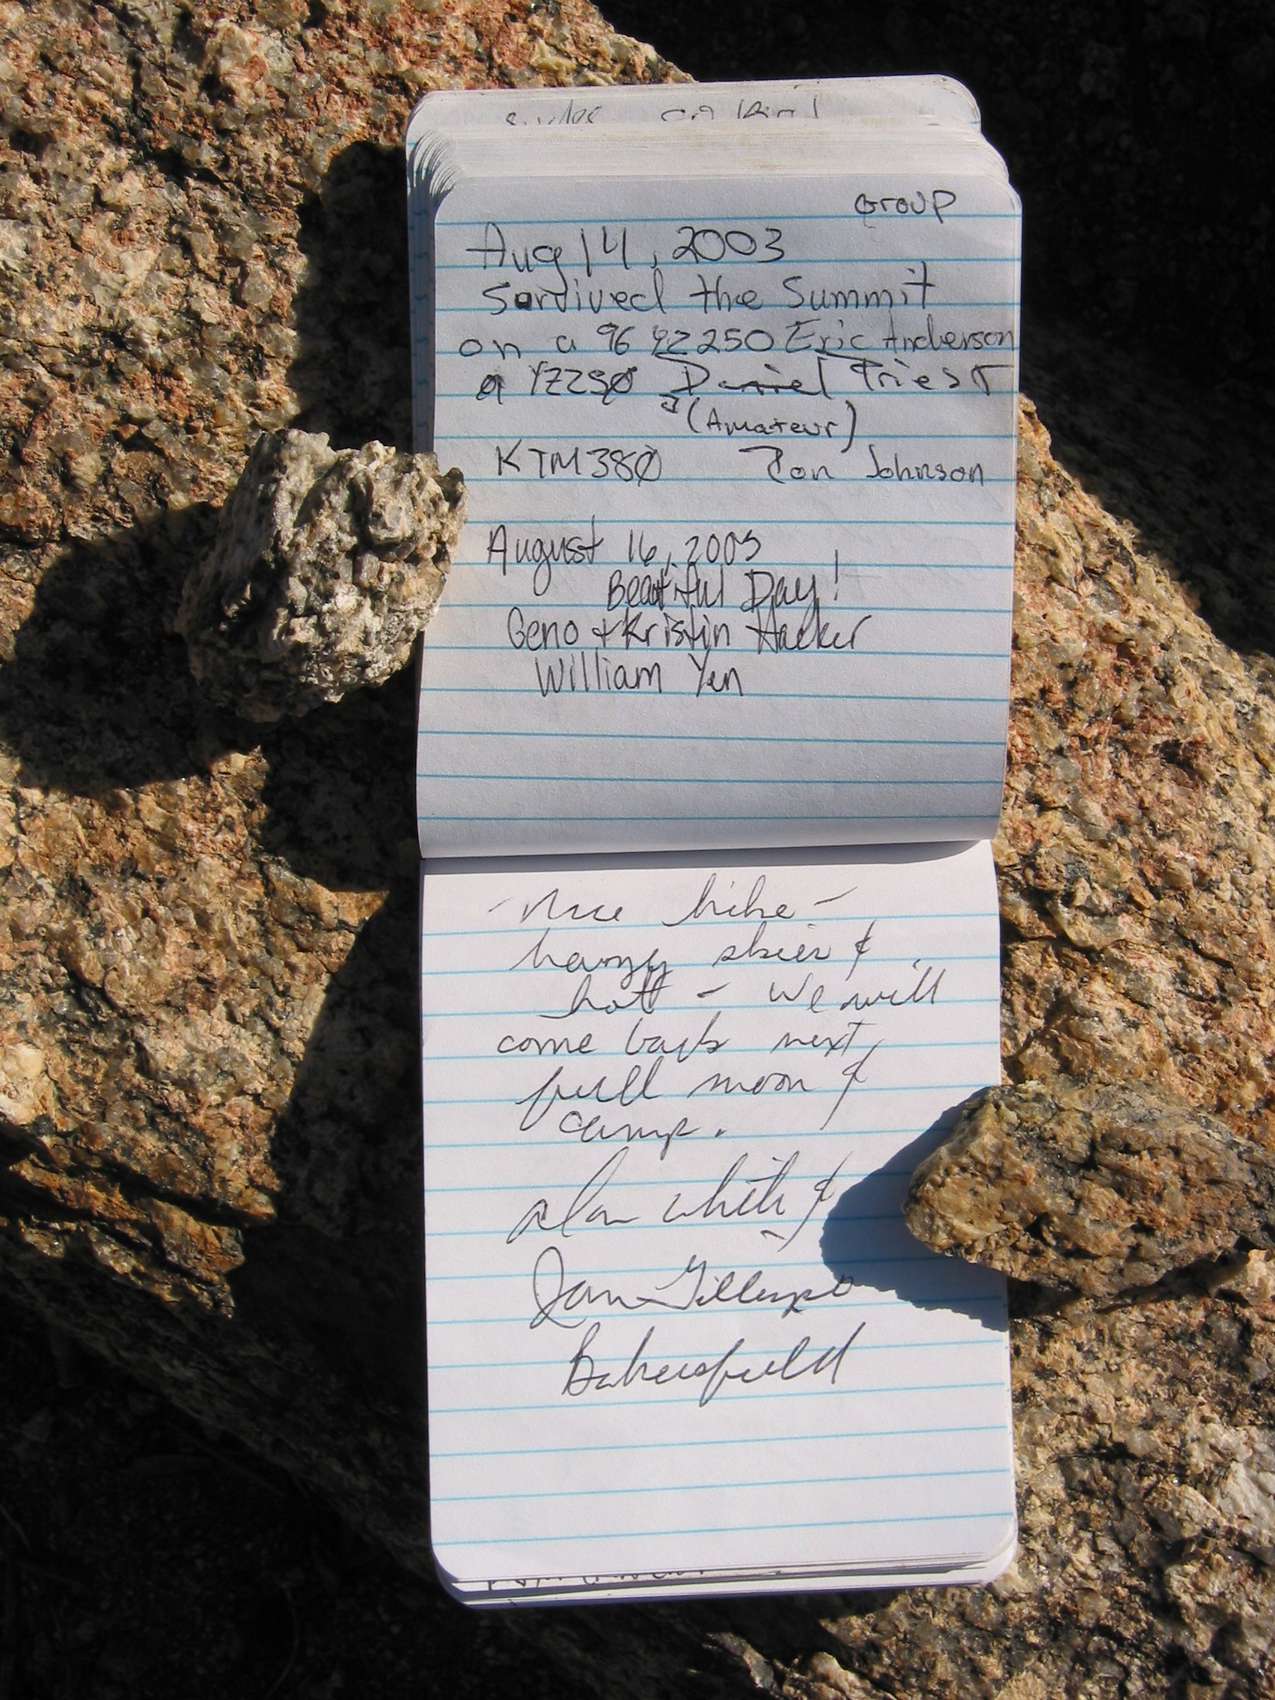 Group
Aug 14, 2003
Survived the Summit
on a 96 YZ250 Eric Anderson
a YZ250 Daniel Priest
(Amateur)
KTM380 Ron Johnson
August 16, 2003
Beautiful Day!
Geno + Kristin Hacker
William Yen
- Nice hike -
hazy skies &
hott - We will
come back next
full moon &
camp.
Alan White &
Jan Gillespie
Bakersfield